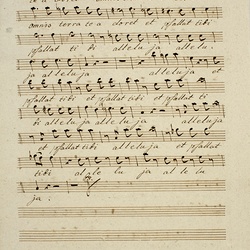 omnis terra te a doret et psallat tibi
psallat ti bi alleluja allelu
ja alleluja alleluja et
psallat tibi et psallat tibi et psallat ti
bi alleluja alleluja alleluja
et psallat tibi alleluja et psallat
tibi al le lu ja al le lu
ja.